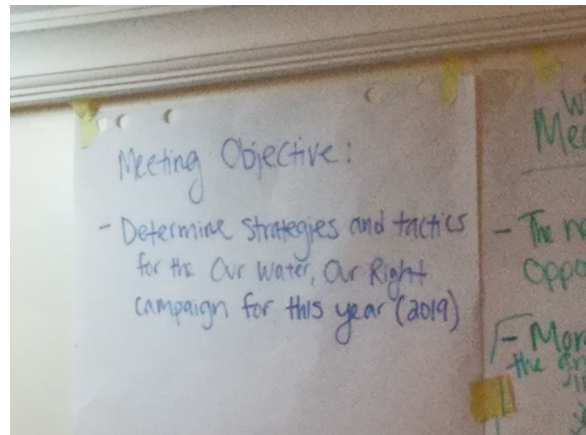 Meeting Objective:
- Determine strategies and tactics
for the Our Water, Our Right
campaign for this year (2019)
- The
- More
the